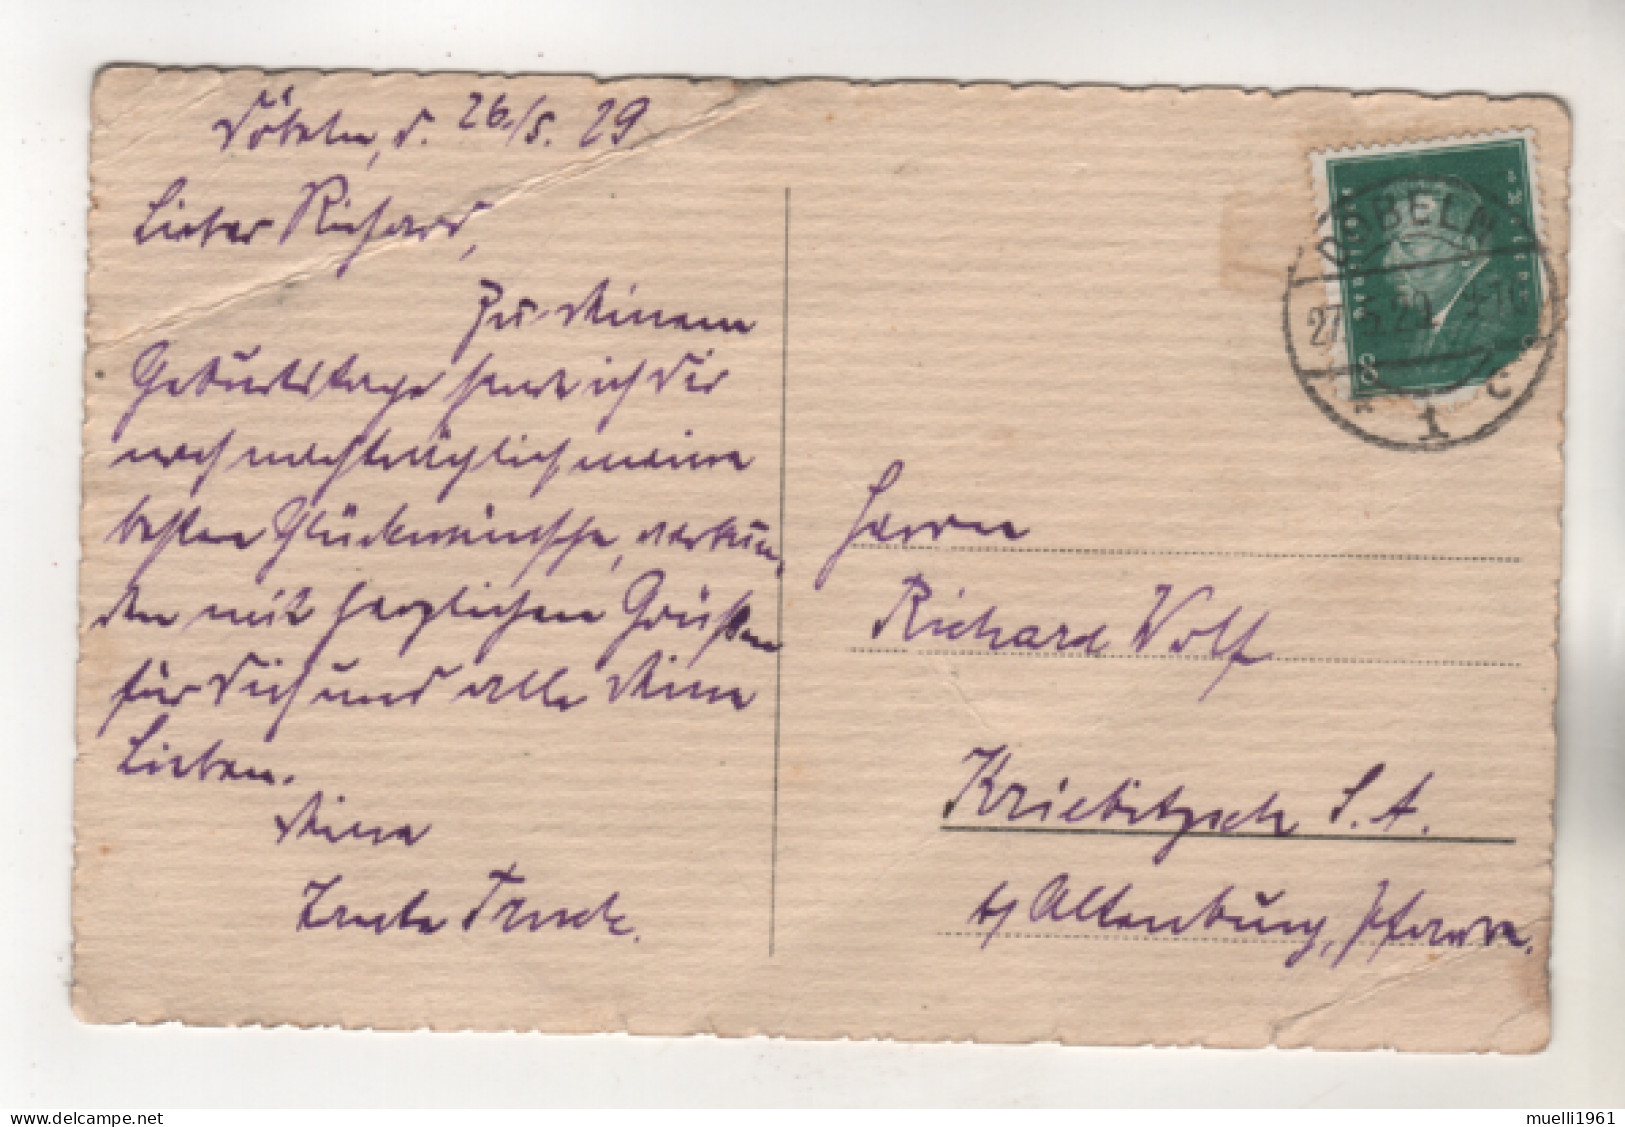 Döbeln, d. 26./5. 29
Lieber Richard,
Zu Deinem
Geburtstage sende ich Dir
noch nachträglich meine
besten Glückwünsche, verbun-
den mit herzlichen Grüßen
für Dich und alle Deine
Lieben.
Deine
Tante
DÖBELN
27.5.29. 9-10
* 1 c
8
Herrn
Richard Wolf
Kriebitzsch S. A.
b/ Altenburg, Pfarre.
www.delcampe.net
muelli1961